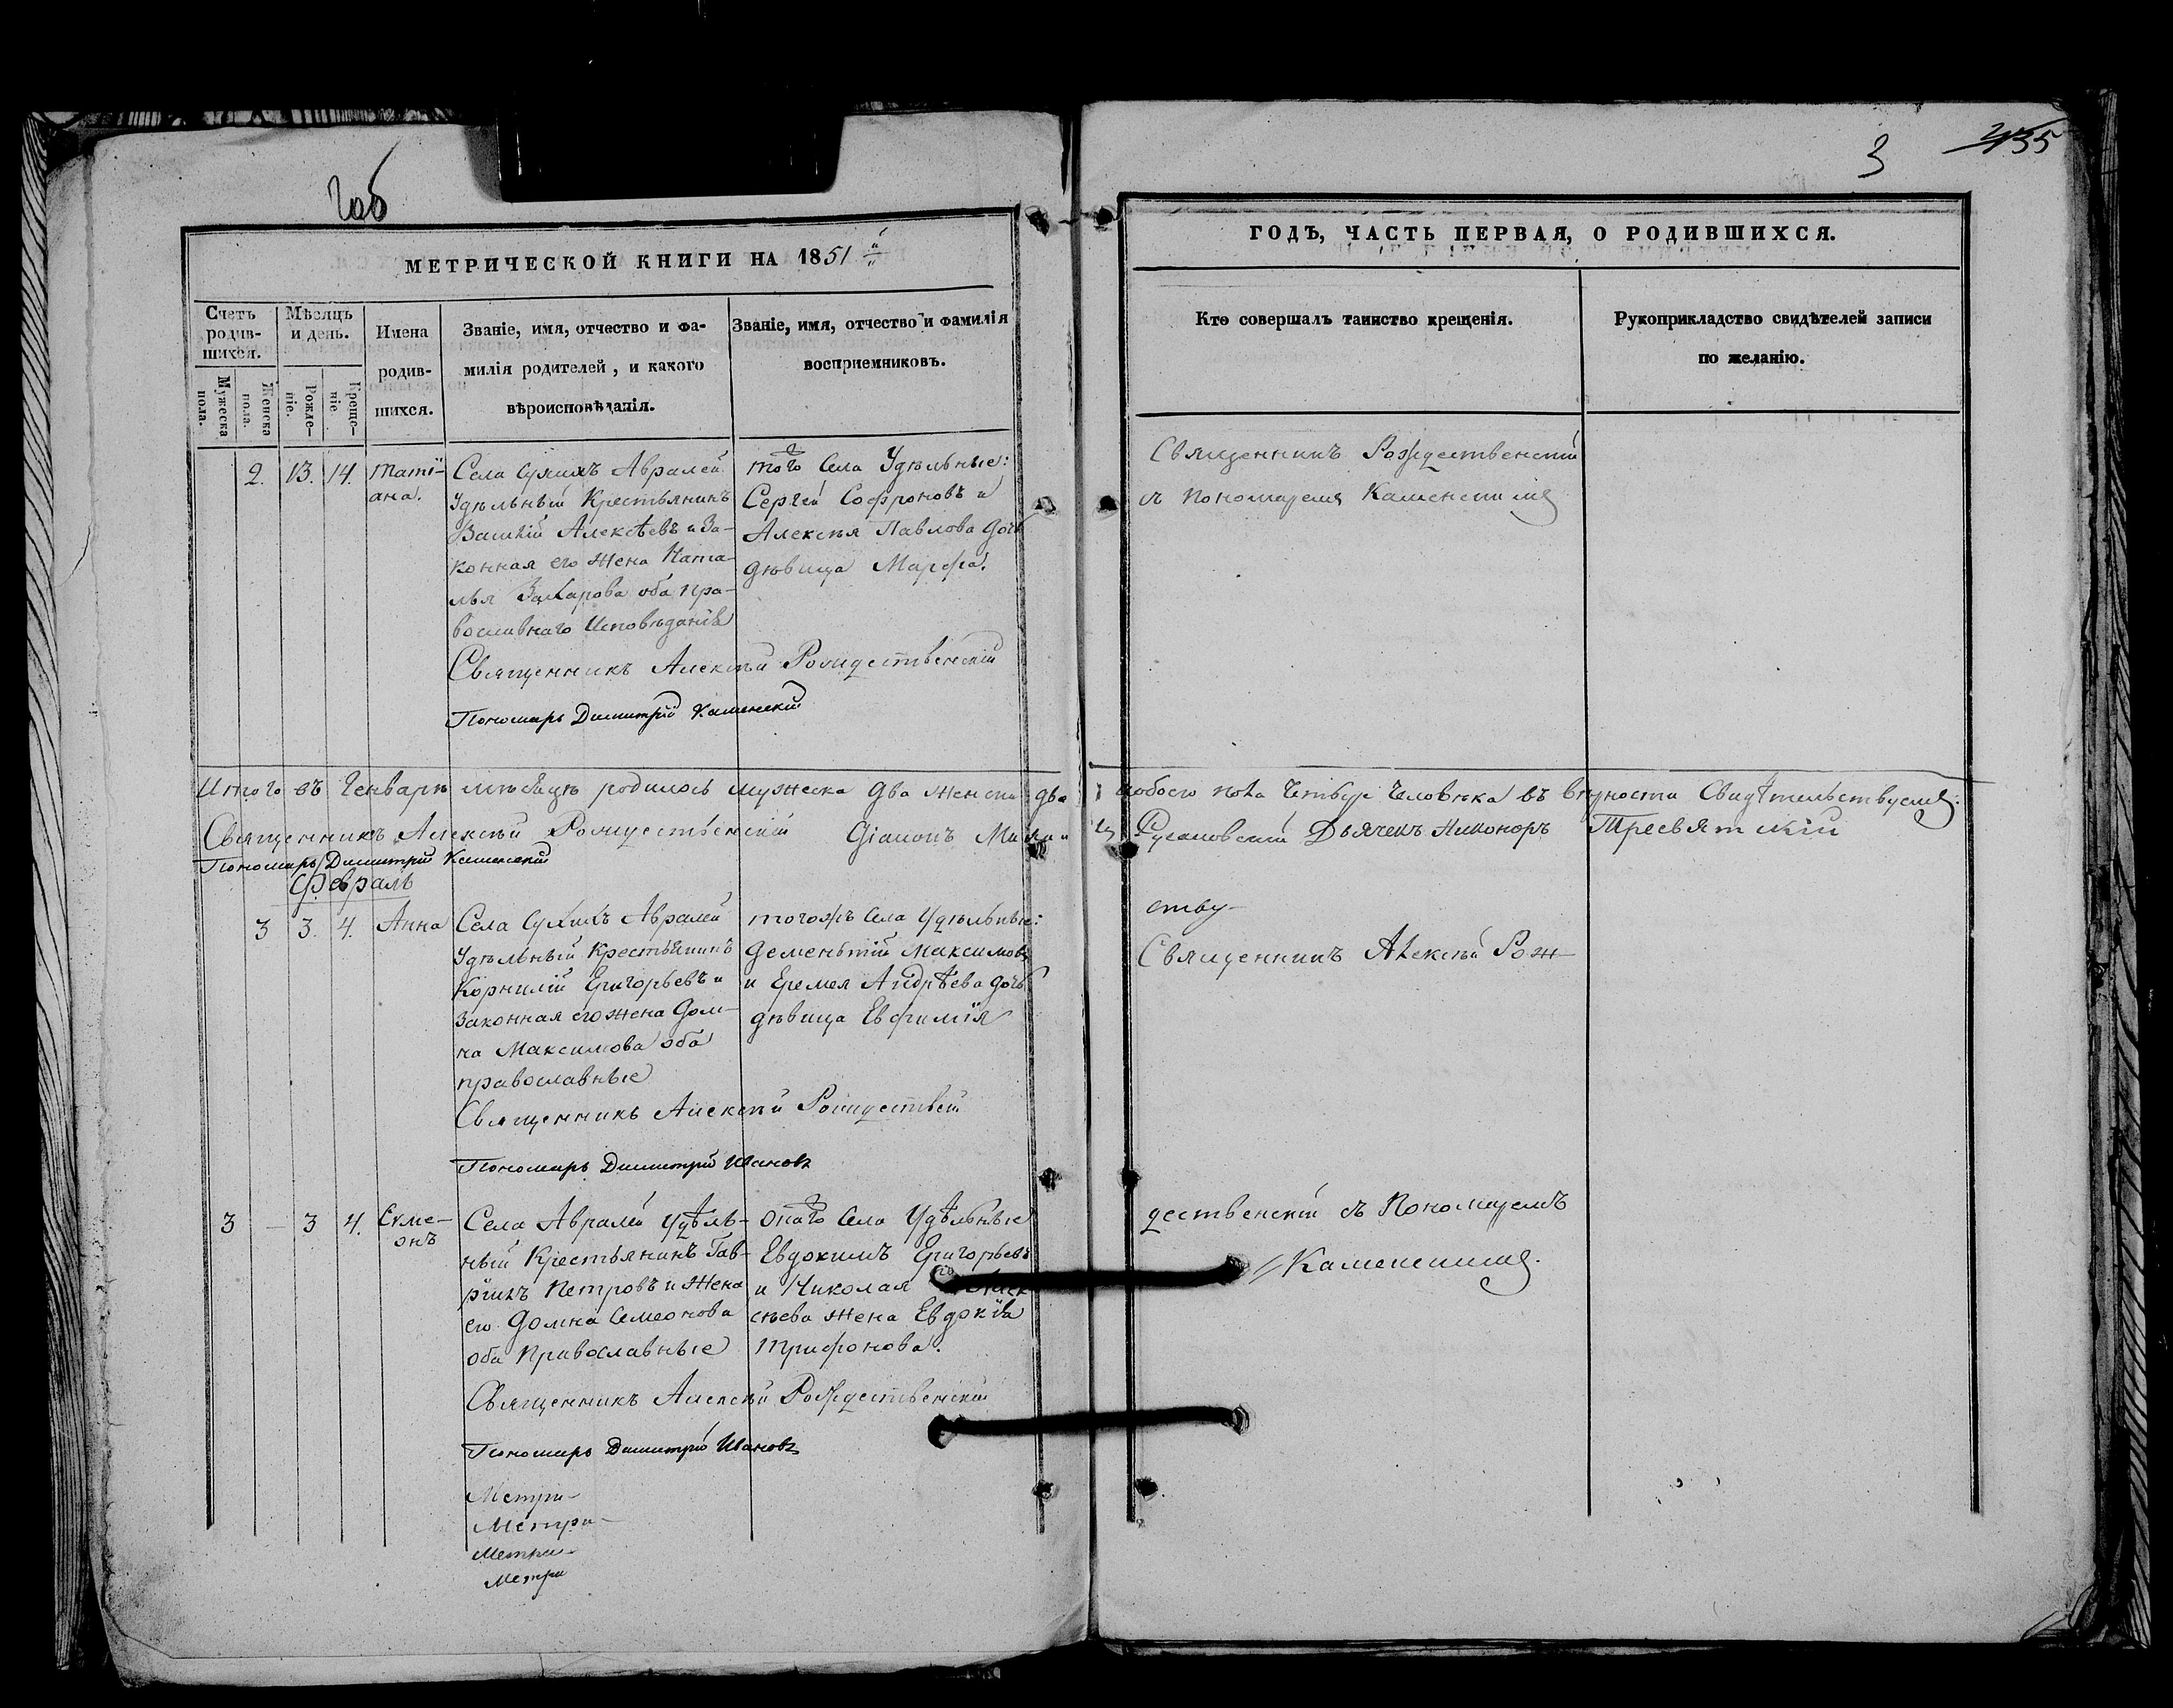 2об
3
435
МЕТРИЧЕСКОЙ КНИГИ НА 1851 й
ГОДЪ, ЧАСТЬ ПЕРВАЯ, О РОДИВШИХСЯ.
Счетъ
родив-
шихся.
Мужеска
пола.
Женска
пола.
Мѣсяцъ
и день.
Рожде-
ніе.
Креще-
ніе.
Имена
родив-
шихся.
Званіе, имя, отчество и фа-
милія родителей, и какого
вѣроисповѣданія.
Званіе, имя, отчество и фамилія
воспріемниковъ.
Кто совершалъ таинство крещенія.
Рукоприкладство свидѣтелей записи
по желанію.
2. 13. 14.
Таті-
ана.
Села Сухихъ Авралей
Удѣльный Крестьянинъ
Василій Алексѣевъ и За-
конная его Жена Ната-
лья Захарова оба пра-
вославнаго Исповѣданія
того Села Удѣльные:
Сергей Софроновъ и
Алексѣя Павлова дочь
дѣвица Марфа.
Священникъ Рождественскій
съ Пономаремъ Каменскимъ
Священникъ Алексѣй Рождественскій
Пономарь Димитрій Каменскій
Итого въ Генварѣ мѣсяцѣ родилось мужеска два женска два обоего пола Четыре Человѣка въ вѣрности Свидѣтельствуемъ:
Священникъ Алексѣй Рождественскій Діаконъ Русановскій Дьячекъ Никоноръ Тресвятскій
Пономарь Димитрій Каменскій
Февраль
3 3. 4. Анна
Села Сухихъ Авралей
Удѣльный Крестьянинъ
Корнилій Григорьевъ и
Законная его жена Дом-
на Максимова оба
православные
тогожъ Села Удѣльные:
Дементій Максимовъ
и Еремея Андрѣева дочь
дѣвица Евфимія
ству-
Священникъ Алексѣй Рож-
Священникъ Алексѣй Рождествен
Пономарь Димитрій Ивановъ
3 - 3 4.
Симе-
онъ
Села Авралей Удѣль-
ный Крестьянинъ Гав-
ріилъ Петровъ и Жена
его Домна Семеонова
оба Православные
онаго Села Удѣльные
Евдокимъ Григорьевъ
и Николая Алек
сѣева жена Евдокія
Трифонова.
дественскій съ Пономаремъ
Каменскимъ.
Священникъ Алексѣй Рождественскій
Пономарь Димитрій Ивановъ
Метри-
Метри-
Метри-
Метри